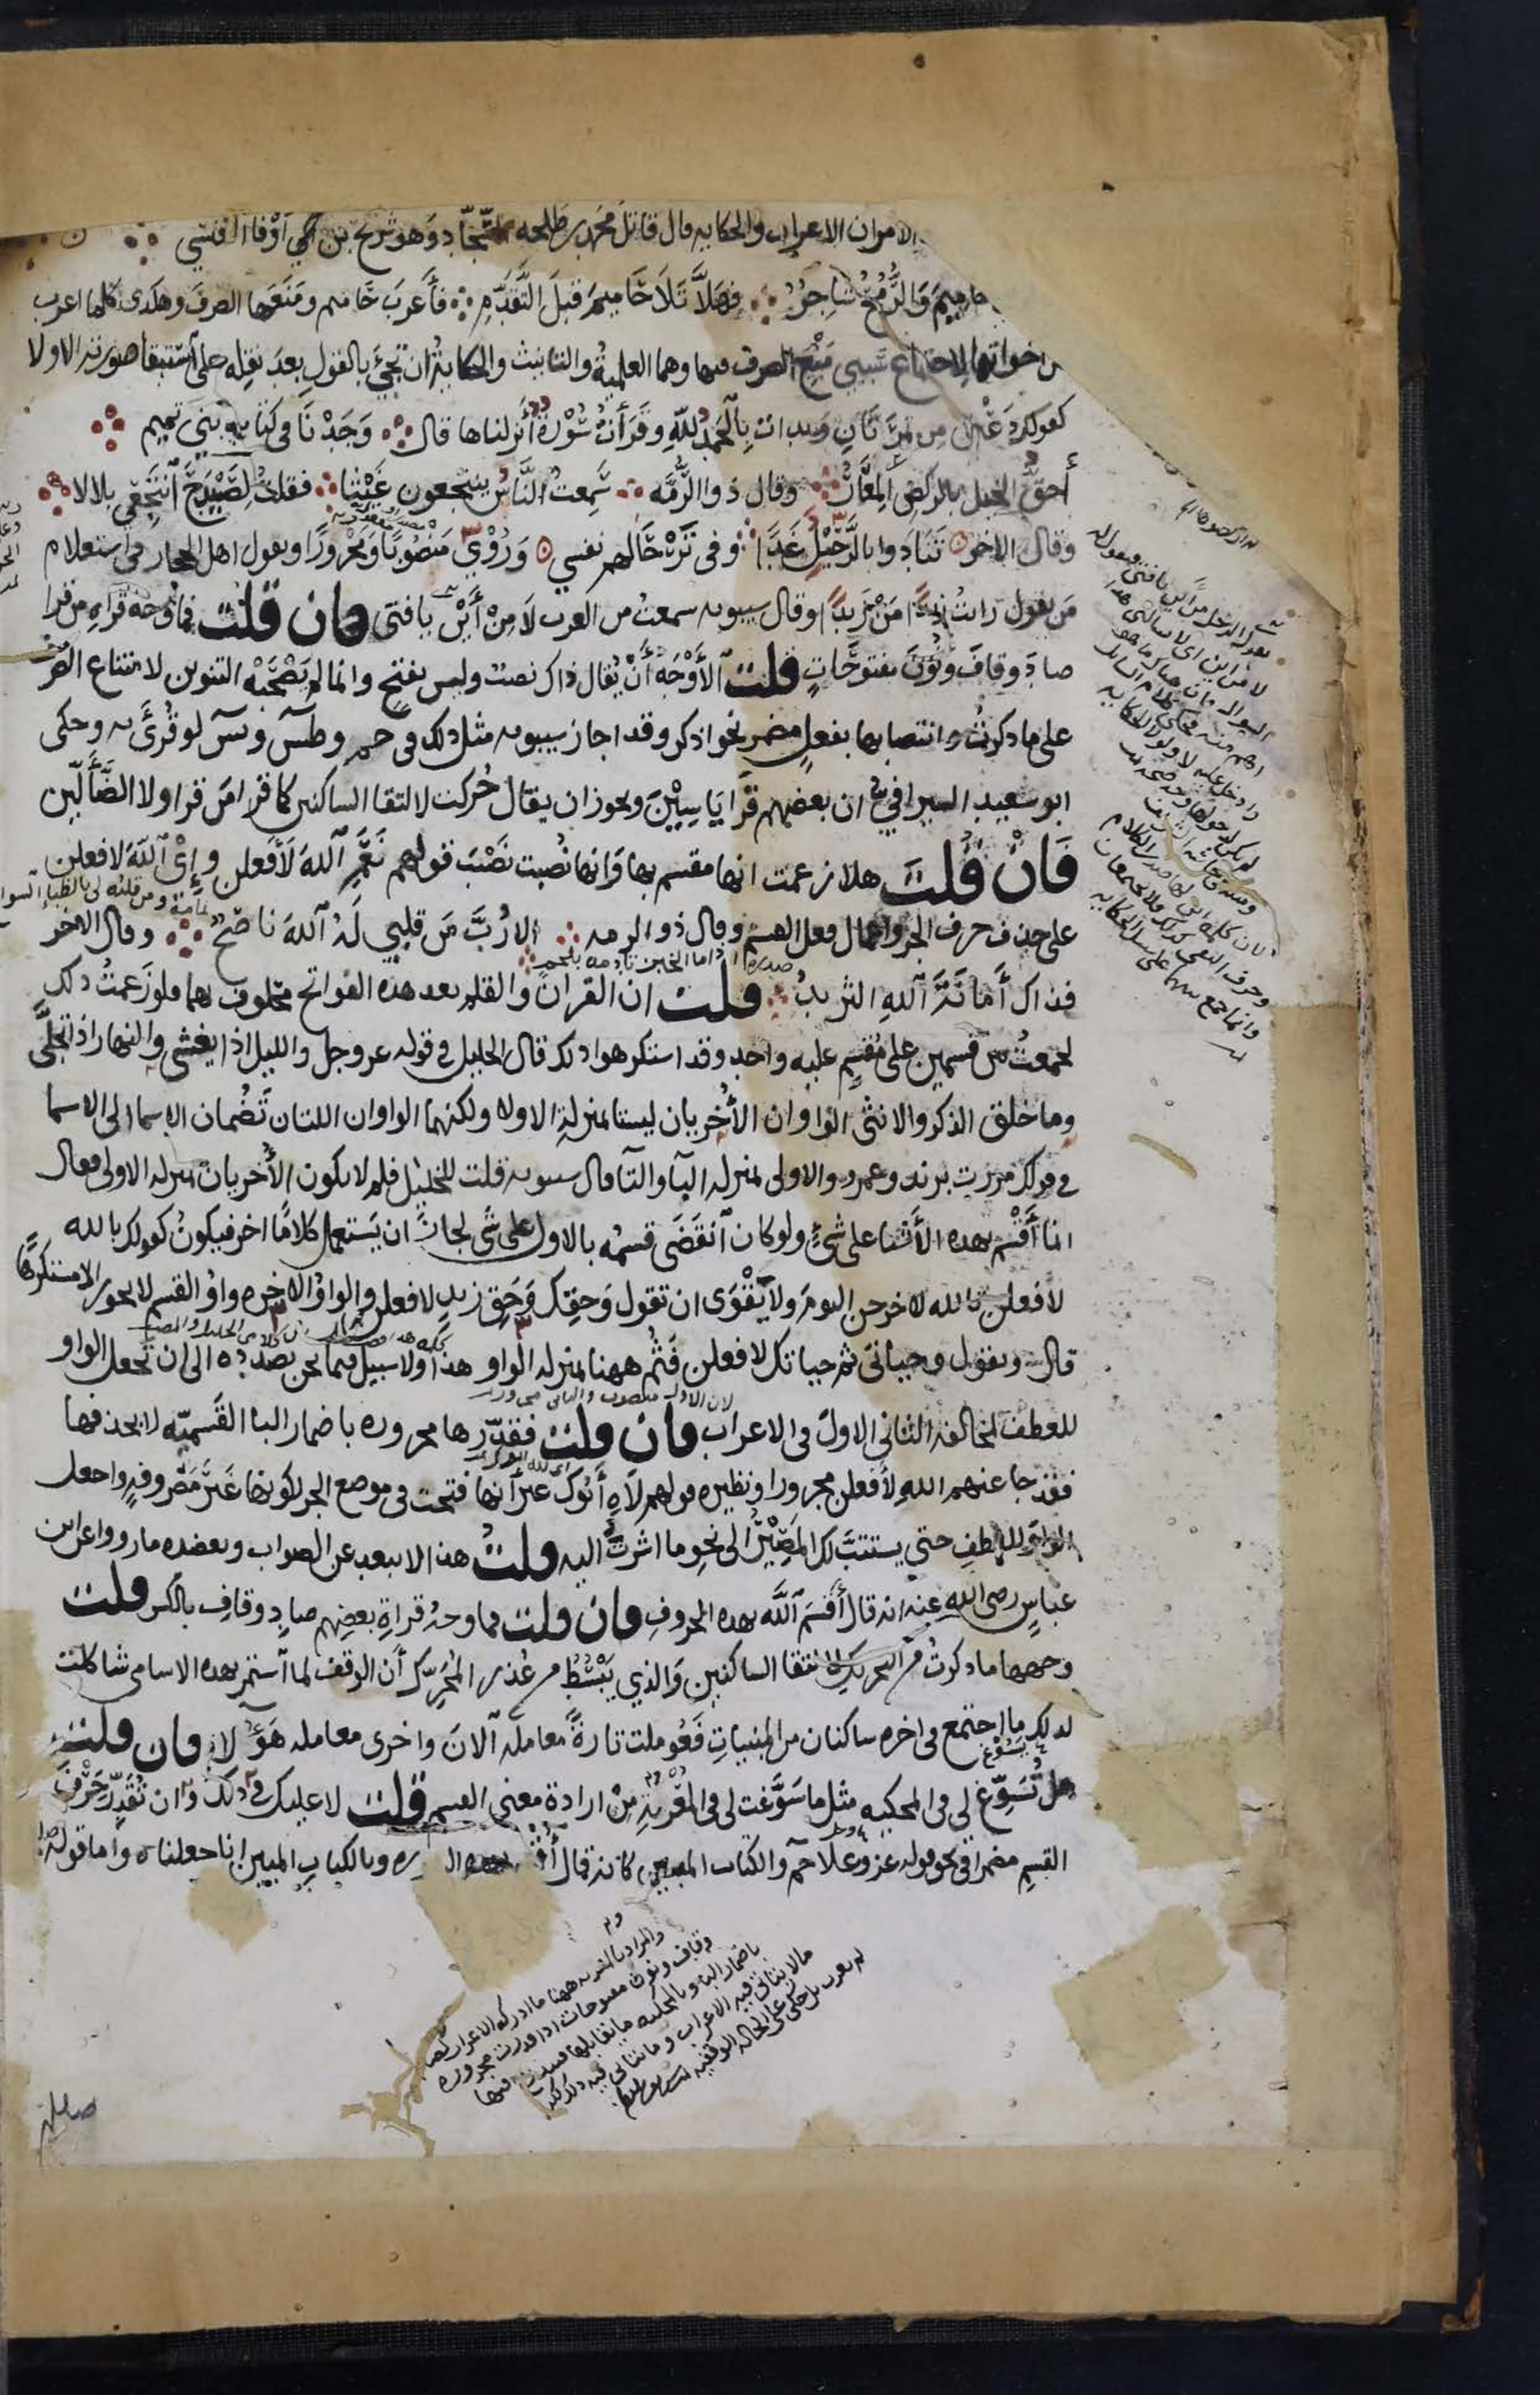 الامران الاعراب والحكايه قال قاتل محمد بن طلحه السجاد وهو شريح بن ابي اوفا العبسي
حاميم والرمح شاجر فهلا تلا حاميم قبل التقدم فأعرب حاميم ومنعها الصرف وهكذى كلما اعرب
من اخواتها لاجتماع سببي منع الصرف فيها وهما العلمية والتانيث والحكاية ان تجيء بالقول بعد نقله على استبقا صورته الاولا
كقولك دعني من تمرتان وبدات بالحمد لله وقرأت سورة أنزلناها قال وجدنا في كتاب بني تميم
أحق الخيل بالركض المعار وقال ذو الرمه سمعت الناس ينتجعون غيثا فقلت لصيدح انتجعي بلالا
وقال الاخر تنادوا بالرحيل غدا وفي ترحالهم نفسي وروي منصوبا ومجرورا ويقول اهل الحجاز في استعلام
من يقول رايت زيدا من زيدا وقال سيبويه سمعت من العرب لا من أين يا فتى فان قلت فما وجه قراة من قرا
صاد وقاف ونون مفتوحات قلت الأوجه أن يقال ذاك نصب وليس بفتح وانما لم يصحبه التنوين لامتناع الصرف
على ما ذكرت وانتصابها بفعل مضمر نحو اذكر وقد اجاز سيبويه مثل ذلك في حم وطس ويس لو قرئ به وحكى
ابو سعيد السيرافي ان بعضهم قرا ياسين ويجوز ان يقال حركت لالتقا الساكنين كما قرا من قرا ولا الضألين
فان قلت هلا زعمت انها مقسم بها وانها نصبت نصب قولهم نعم الله لأفعلن وإي الله لافعلن
على حذف حرف الجر واعمال فعل القسم وقال ذو الرمه الا رب من قلبي له الله ناصح وقال الاخر
ومن قلبه لي بالظباء السوانح
صدره اذا ما الخبز تأدمه بلحم
فذاك أمانة الله الثريد قلت ان القران والقلم بعد هذه الفواتح محلوف بهما فلو زعمت ذلك
لجمعت بين قسمين على مقسم عليه واحد وقد استكرهوا ذلك قال الخليل في قوله عز وجل والليل اذا يغشى والنهار اذا تجلى
وما خلق الذكر والانثى الواوان الأخريان ليستا بمنزلة الاولا ولكنهما الواوان اللتان تضمان الاسما الى الاسما
في قولك مررت بزيد وعمرو والاولى بمنزله البآ والتآ قال سيبويه قلت للخليل فلم لا يكون الأخريان بمنزله الاولى فقال
انما أقسم بهذه الأشيا على شيء ولو كان انقضى قسمه بالاول على شي لجاز ان يستعمل كلاما اخر فيكون كقولك بالله
لأفعلن تالله لاخرجن اليوم ولا يقوى ان تقول وحقك وحق زيد لافعلن والواو الاخره واو القسم لا يجوز الا مستكرها
قال وتقول وحياتي ثم حياتك لافعلن فثم ههنا بمنزله الواو هذا ولا سبيل فيما نحن بصدده الى ان تجعل الواو
لان الاول منصوب والثاني مجرور
للعطف لمخالفة الثاني الاول في الاعراب فان قلت فقدرها مجروره باضمار البا القسميه لا بحذفها
فقد جا عنهم الله لأفعلن مجرورا ونظيره قولهم لاه أبوك غير أنها فتحت في موضع الجر لكونها غير مصروفة واجعل
الواو للعطف حتى يستتب لك المصير الى نحو ما اشرت اليه قلت هذا لا يبعد عن الصواب ويعضده ما رووا عن ابن
عباس رضي الله عنه انه قال أقسم الله بهذه الحروف فان قلت فما وجه قراة بعضهم صاد وقاف بالكسر قلت
وجهها ما ذكرت من التحريك لالتقا الساكنين والذي يبسط من عذر المحرك أن الوقف لما استمر بهذه الاسامي شاكلت
لذلك ما اجتمع في اخره ساكنان من المبنيات فعوملت تارة معاملة ألان واخرى معامله هؤلا فان قلت
هل تسوغ لي في المحكيه مثل ما سوغت لي في المعربة من ارادة معنى القسم قلت لا عليك في ذلك وان تقدر حرف
القسم مضمرا في نحو قوله عز وعلا حم والكتاب المبين كانه قال أقسم بهذه السوره وبالكتاب المبين إنا جعلناه واما قوله
والمراد بالمعربه ههنا ما ادركه الاعراب كصاد
وقاف ونون مفتوحات اذا قدرت مجروره
باضمار البا وبالمحكيه ما يقابلها
مالا يتاتى فيه الاعراب وما يتاتى فيه ذلك
لم يعرب بل حكي على الحاله الوقفيه